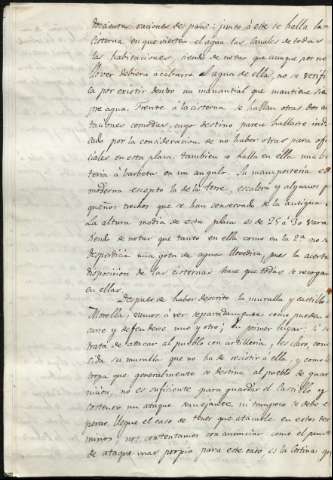 raciones de pan: junto á este se halla la
cisterna en que vierten el agua las canales de todas
las habitaciones, siendo de notar que aunque por no
llover debiera acabarse el agua de ella, no se verifi
ca por existir dentro un manantial que mantiene siem
pre agua. frente á la cisterna se hallan otras dos ha
vitaciones comodas, cuyo destino parece hallarse indi
cado por la consideracion de no haber otras para ofi
ciales en esta plaza. tambien se halla en ella una ba
teria á barbeta en un angulo. la mamposteria es
moderna excepto la de la torre, escalera y algunos pe
queños trechos que se han conservado de la antigua.
La altura media de esta plaza es de 25 á 30 varas
siendo de notar que tanto en ella como en la 2ª no se
desperdicia una gota de agua llovediza, pues la acertada
disposicion de las cisternas hace que todas se recogan
en ellas.
Despues de haber descrito la muralla y castillo de
Morella; vamos á ver separadamente como pueden ata
carse y defenderse uno y otro; en primer lugar: si se
trata de atacar al pueblo con artilleria, es claro, cono
cida su muralla que no ha de resistir á ella, y como la
tropa que generalmente se destina al pueblo de guar
nicion, no es suficiente para guardar el castillo y
sostener un ataque semejante, ni tampoco se debe es
perar llegue el caso de tener que atacarle en estos ter
minos, nos contentamos con anunciar como el punto
de ataque mas propio para este caso es la Cortina que